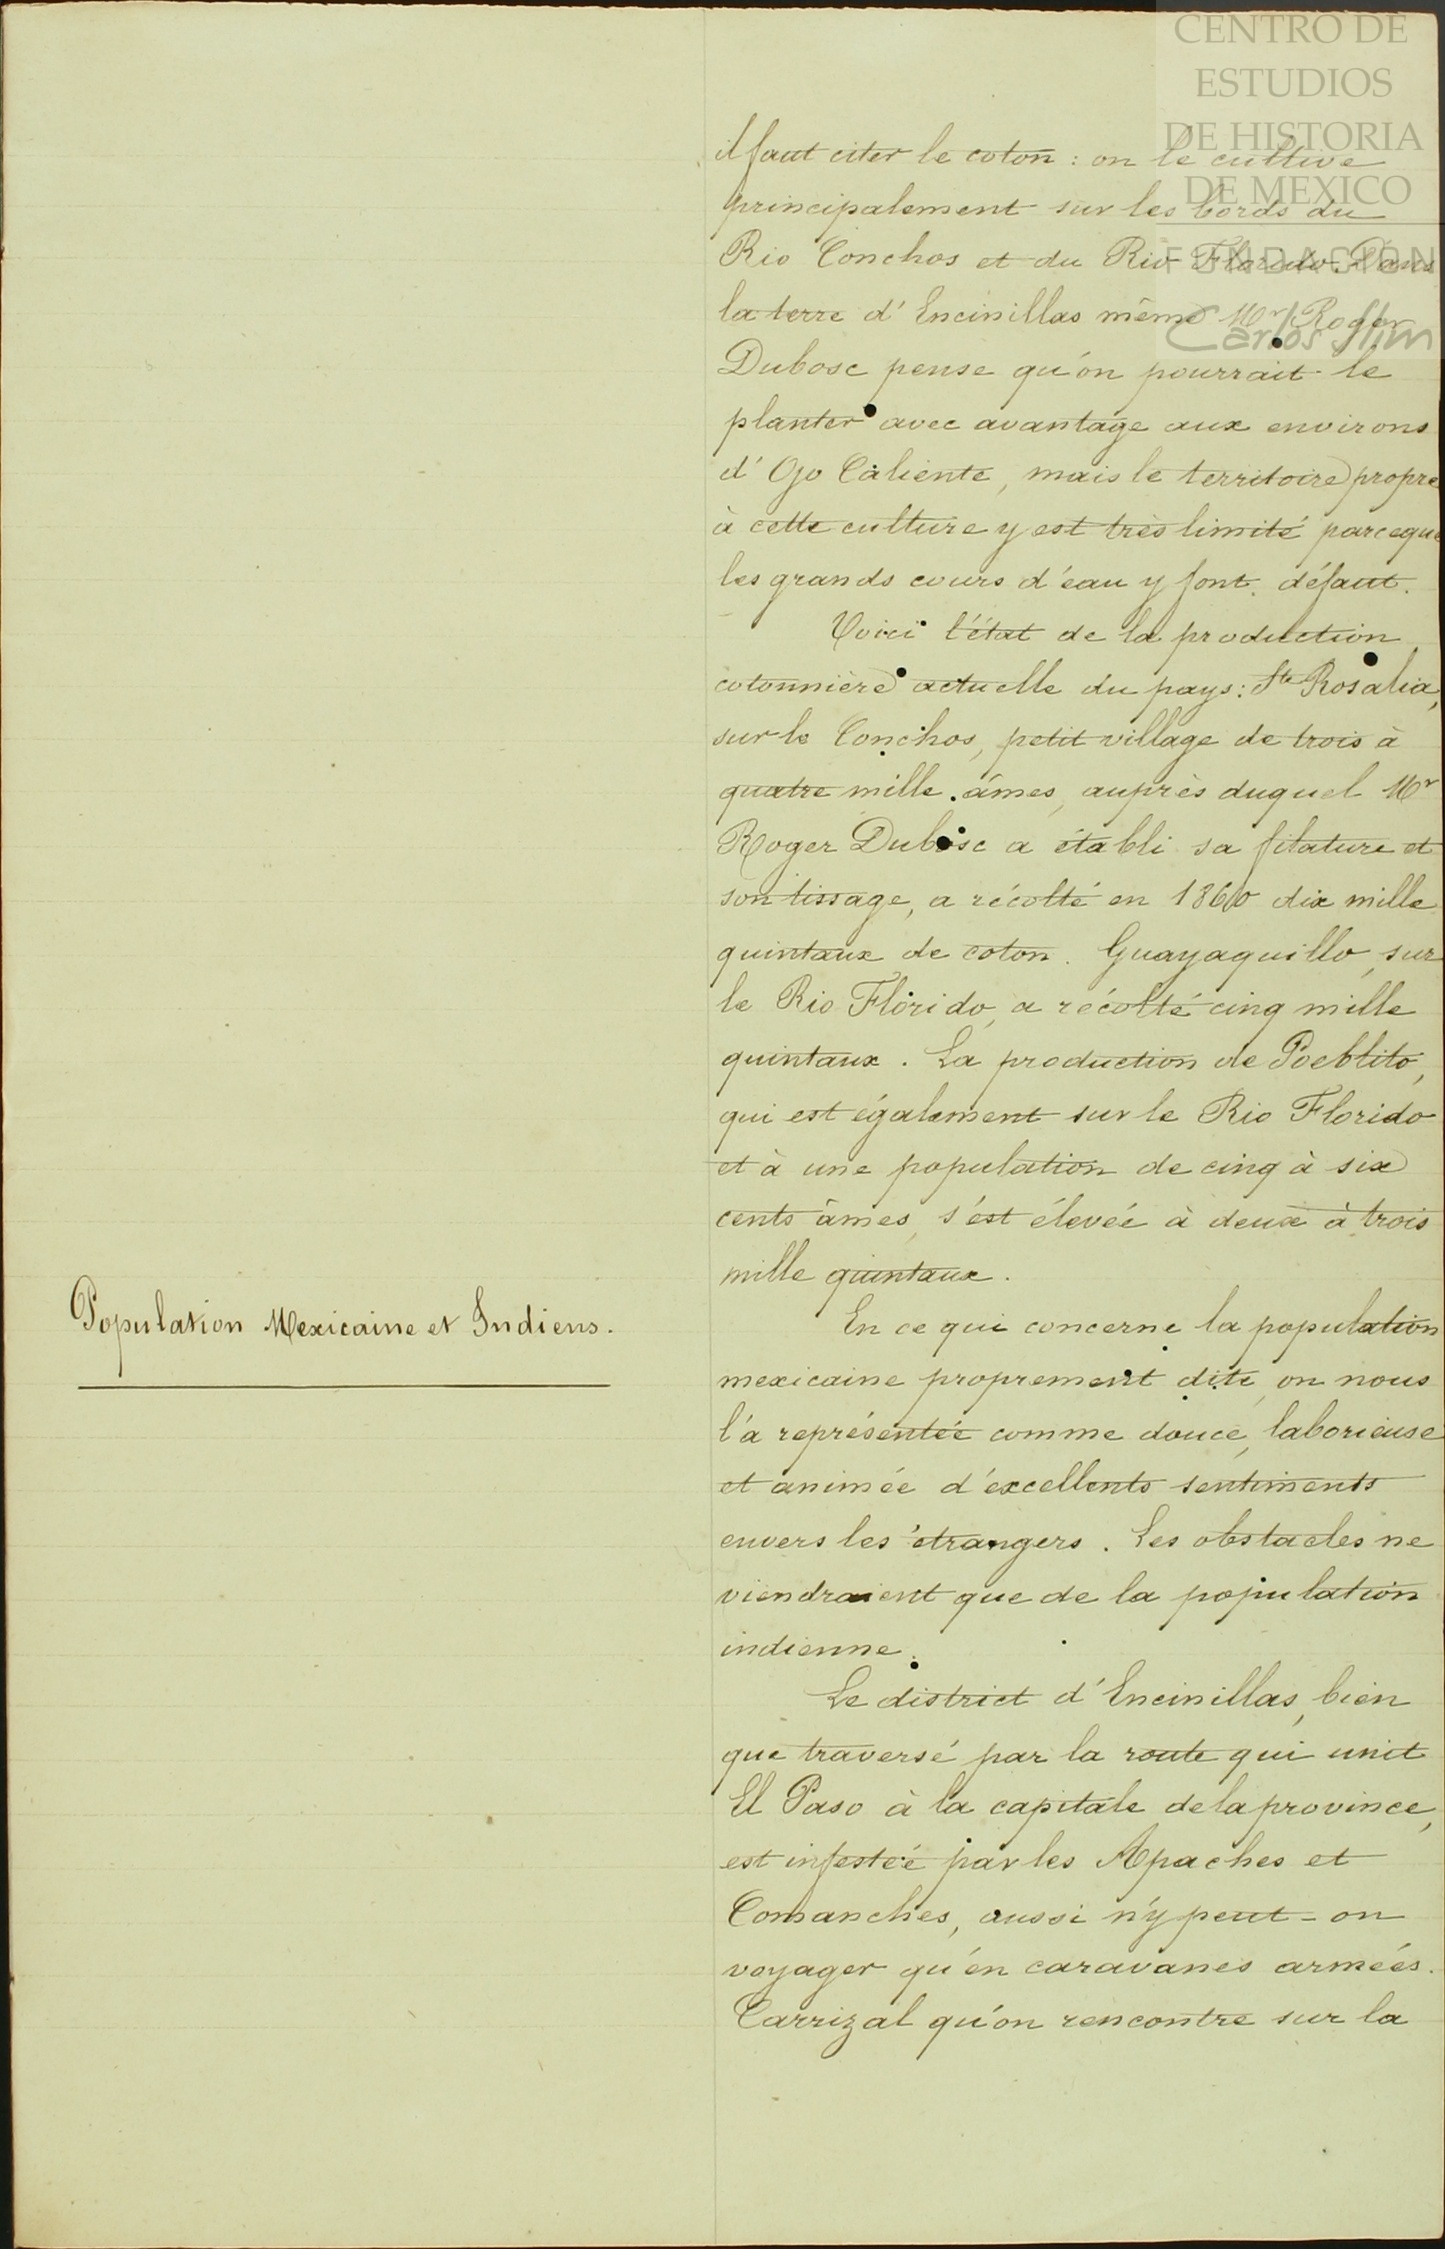 CENTRO DE
ESTUDIOS
DE HISTORIA
DE MEXICO
FUNDACIÓN
Carlos Slim
il faut citer le coton : on le cultive
principalement sur les bords du
Rio Conchos et du Rio Florido. Dans
la terre d'Encinillas même Mr Roger
Dubosc pense qu'on pourrait le
planter avec avantage aux environs
d'Ojo Caliente, mais le territoire propre
à cette culture y est très limité parceque
les grands cours d'eau y font défaut.
Voici l'état de la production
cotonnière actuelle du pays : Ste Rosalia,
sur le Conchos, petit village de trois à
quatre mille âmes, auprès duquel Mr
Roger Dubosc a établi sa filature et
son tissage, a récolté en 1860 dix mille
quintaux de coton. Guayaquillo, sur
le Rio Florido, a récolté cinq mille
quintaux. La production de Poeblito,
qui est également sur le Rio Florido
et à une population de cinq à six
cents âmes, s'est élevée à deux à trois
mille quintaux.
Population Mexicaine et Indiens.
En ce qui concerne la population
mexicaine proprement dite, on nous
l'a représentée comme douce, laborieuse
et animée d'excellents sentiments
envers les étrangers. Les obstacles ne
viendraient que de la population
indienne.
Le district d'Encinillas, bien
que traversé par la route qui unit
El Paso à la capitale de la province,
est infestée par les Apaches et
Comanches, aussi n'y peut-on
voyager qu'en caravanes armées.
Carrizal qu'on rencontre sur la